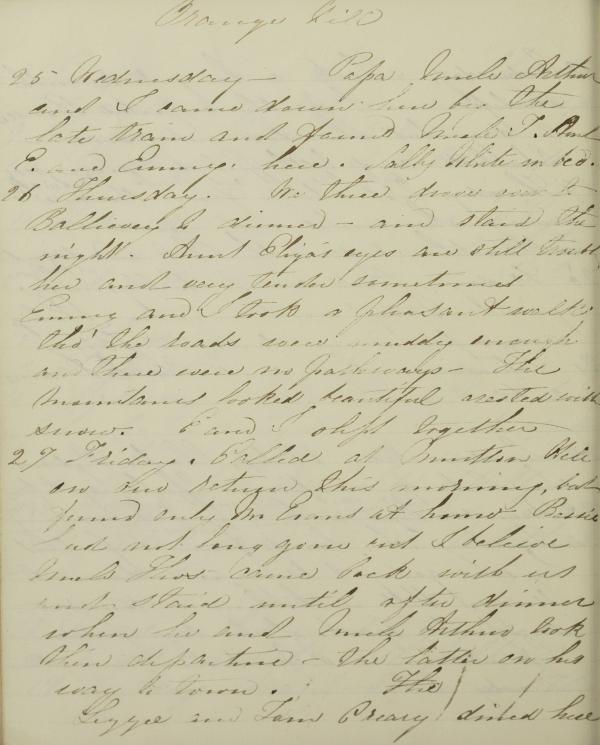 Orange Hill
25 Wednesday - Papa Uncle Arthur
and I came down here by the
late train and found Uncle T. Aunt
E. and Emmy. here. Sally White in bed.
26 Thursday. We three drove over to
Ballievey to dinner - and staid the
night. Aunt Eliza's eyes are still troubl
her and very tender sometimes
Emmy and I took a pleasant walk
tho' the roads were muddy enough
and there were no pathways - The
mountains looked beautiful crested with
snow. E and I slept together
27 Friday. Called at Hill
on our return this morning, but
found only Mr Evans at home Bessie
had not long gone out I beleive
Uncle Thos came back with us
and staid until after dinner
when he and Uncle Arthur took
their departure - the latter on his
way to town. The
Lizzie and Tom Creary dined here